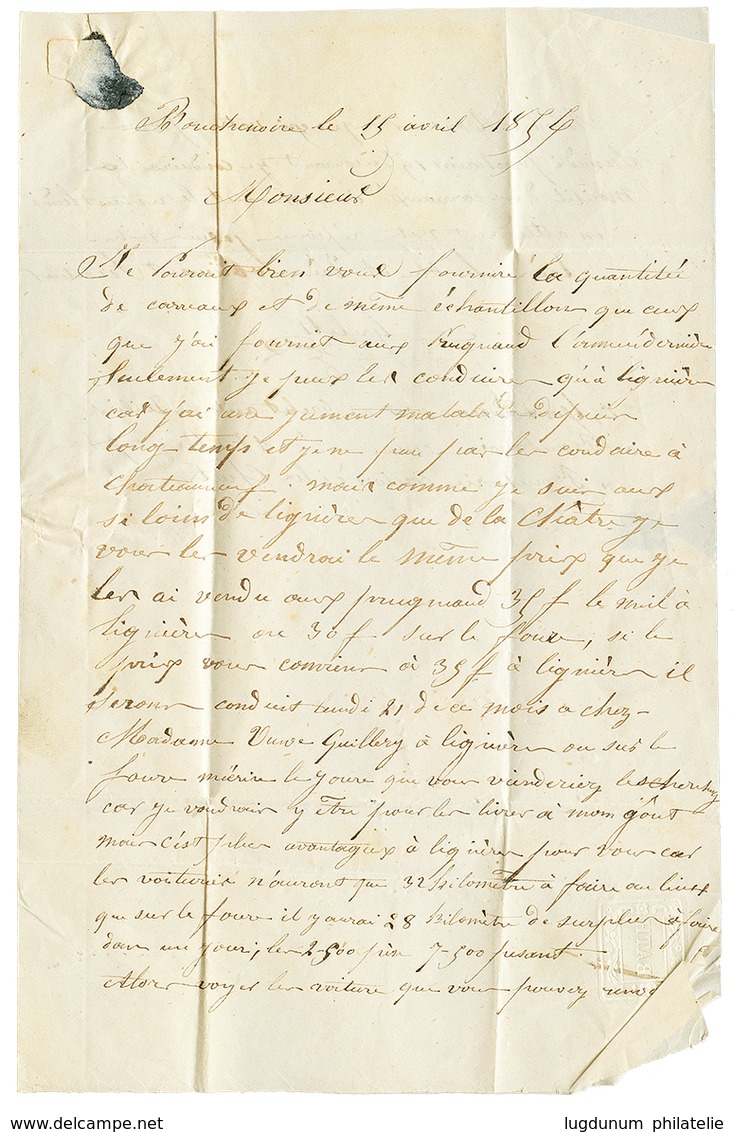 le 15 avril 1854
Monsieur
Je Pourait bien vous fournire la quantitée
de carreaux et de même échantillon que ceux
que j'ai fournit aux Prugnaud l'année dernière
seulement je peux les conduire qu'à lignière
car j'ai une jument malade depuis
long temps et je ne peu pas les conduire à
Chateauneuf. mais comme je suis aux
si loins de lignière que de la Châtre je
vous les vendrai le même prix que je
les ai vendu aux prugnaud 35 f le mil à
lignière ou 30 f sur le foure, si le
prix vous convien à 35 f à lignière il
serons conduit lundi 21 de ce mois a chez
Madame Veuve Guillery à lignière ou sur le
foure le joure que vous vienderiez les cherchez
car je voudrais y être pour les livrer à mom goût
mais c'est plus avantageux à lignière pour vous car
les voiturié n'auront que 32 kilomètre à faire au lieux
que sur le foure il y aurai 28 kilomètre de surplus à faire
dans un jour, les 2-500 7-500 pesant.
Alors voyez les voiture que vous pouvez
delcampe.net
lugdunum philatelie